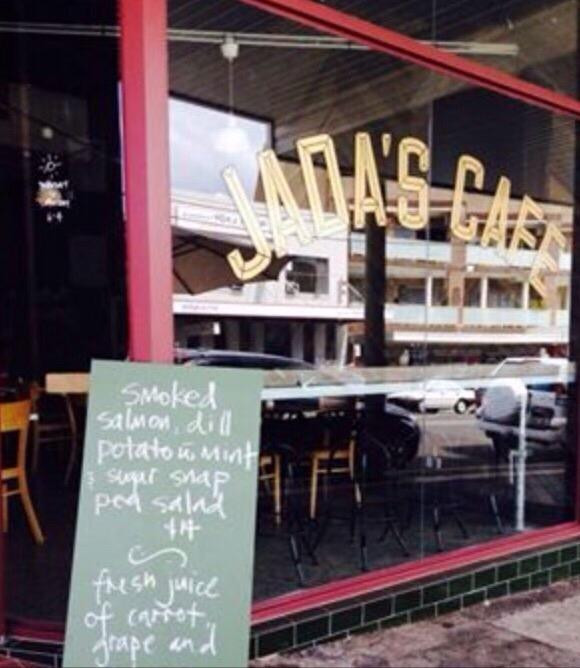 JADA'S CAFE
smoked
salmon, dill
potato w mint
& sugar snap
pea salad
$14
fresh juice
of carrot,
grape and